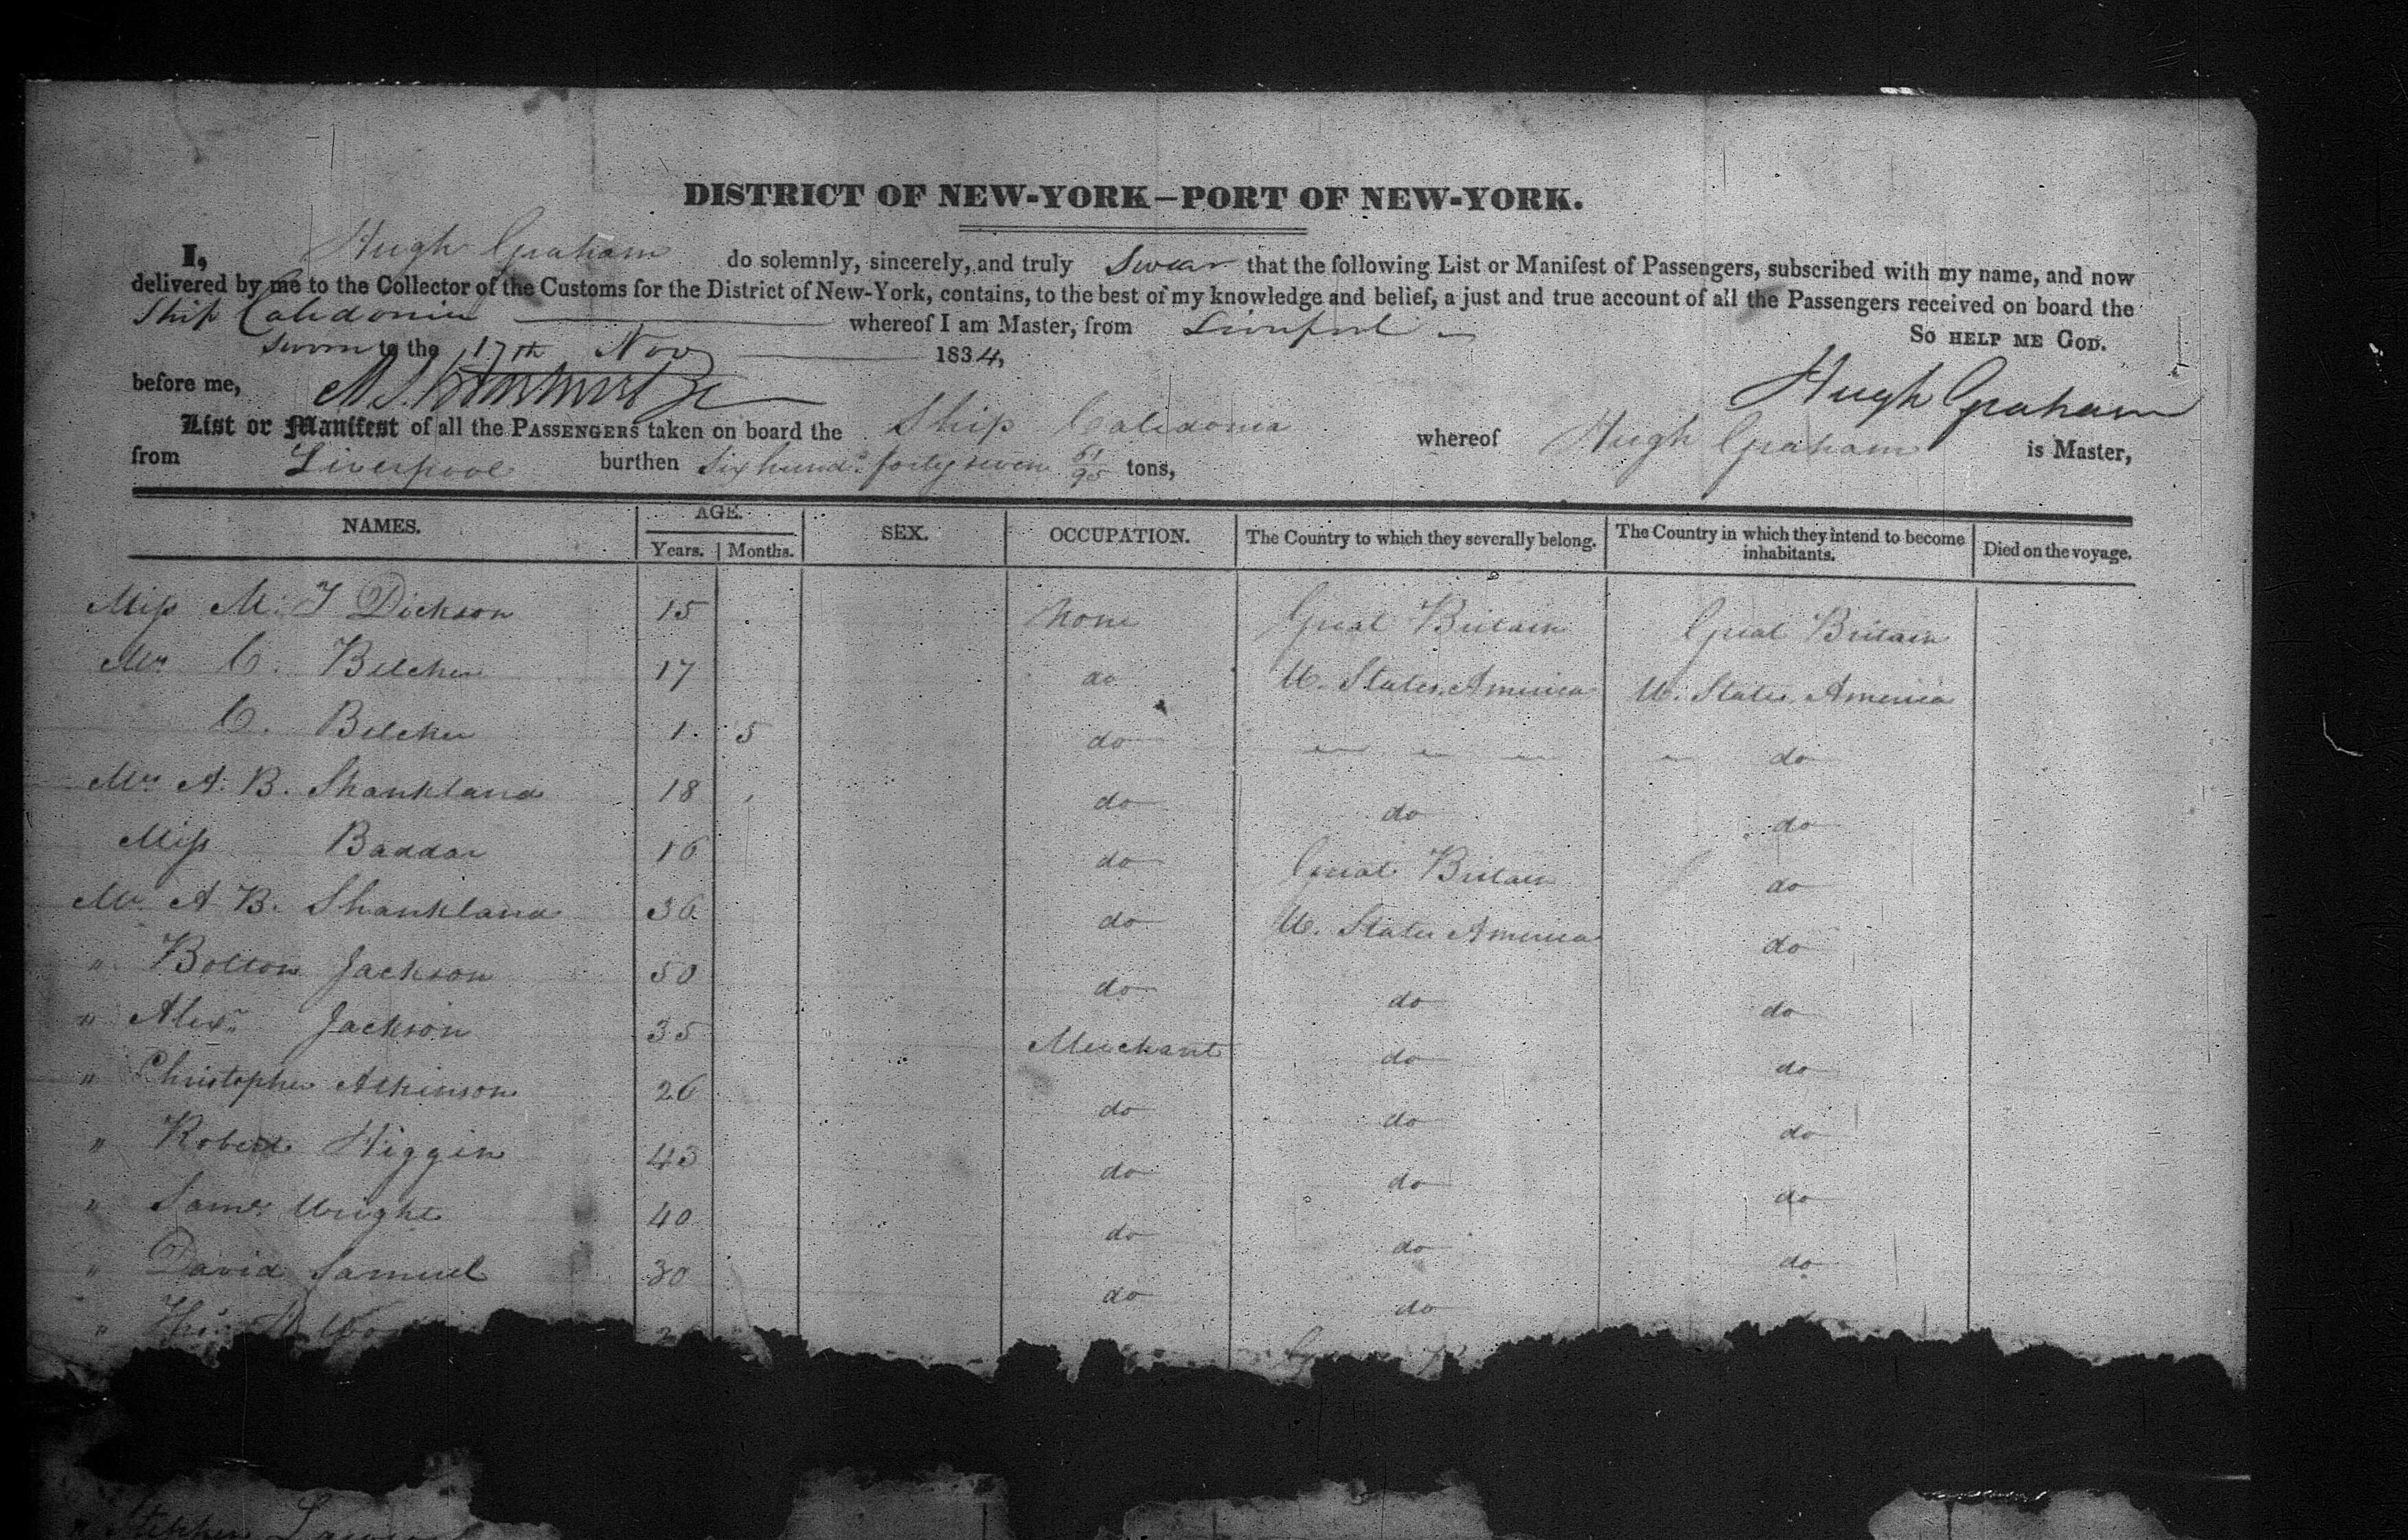 DISTRICT OF NEW-YORK—PORT OF NEW-YORK.
I, Hugh Graham do solemnly, sincerely, and truly Swear that the following List or Manifest of Passengers, subscribed with my name, and now
delivered by me to the Collector of the Customs for the District of New-York, contains, to the best of my knowledge and belief, a just and true account of all the Passengers received on board the
Ship Caledonia whereof I am Master, from Liverpool
So HELP ME GOD.
Sworn to the 17th Nov 1834,
before me,
Hugh Graham
List or Manifest of all the PASSENGERS taken on board the Ship Caledonia whereof Hugh Graham is Master,
from Liverpool burthen Six hund. forty seven 61/95 tons,
NAMES. AGE. SEX. OCCUPATION. The Country to which they severally belong. The Country in which they intend to become inhabitants. Died on the voyage.
Years. Months.
Miss M. J Dickson 15 None Great Britain Great Britain
Mrs C. Belcher 17 do U. States America U. States America
C. Belcher 1. 5 do do
Mrs A. B. Shankland 18 do do do
Miss Baddar 16 do Great Britain do
Mr A B. Shankland 36 do U. States America do
" Bolton Jackson 50 do do do
" Alexr Jackson 35 Merchant do do
" Christopher Atkinson 26 do do do
" Robert Higgin 43 do do do
" Saml Wright 40 do do do
" David Samuel 30 do do do
" Thos
" Stephen